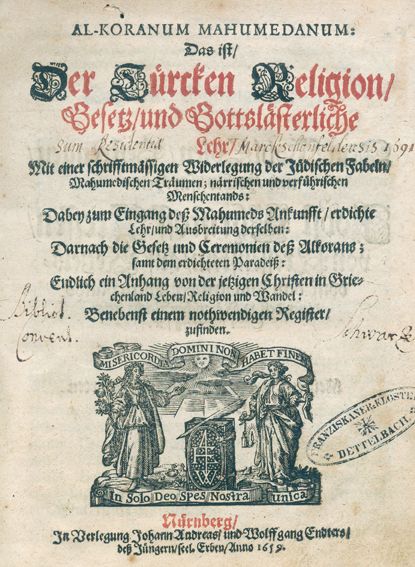 AL-KORANUM MAHUMEDANUM:
Das ist/
Der Türcken Religion/
Gesetz/und Gottslästerliche
Lehr/
Sum Residentiæ Marckscheinfeldensis 1691
Mit einer schrifftmässigen Widerlegung der Jüdischen Fabeln/
Mahumedischen Träumen; närrischen und verführischen
Menschentands:
Dabey zum Eingang deß Mahumeds Ankunfft/erdichte
Lehr/und Ausbreitung derselben:
Darnach die Gesetz und Ceremonien deß Alkorans;
samt dem erdichteten Paradeiß:
Endlich ein Anhang von der jetzigen Christen in Grie-
chenland Leben/Religion und Wandel:
Benebenst einem nothwendigen Register/
zufinden.
Bibliot.
Convent.
MISERICORDIA DOMINI NON HABET FINEM
In Solo Deo Spes Nostra unica
FRANZISKANER-KLOSTER
DETTELBACH
Nürnberg/
In Verlegung Johann Andreas/und Wolffgang Endters/
deß Jüngern/seel. Erben/Anno 1659.